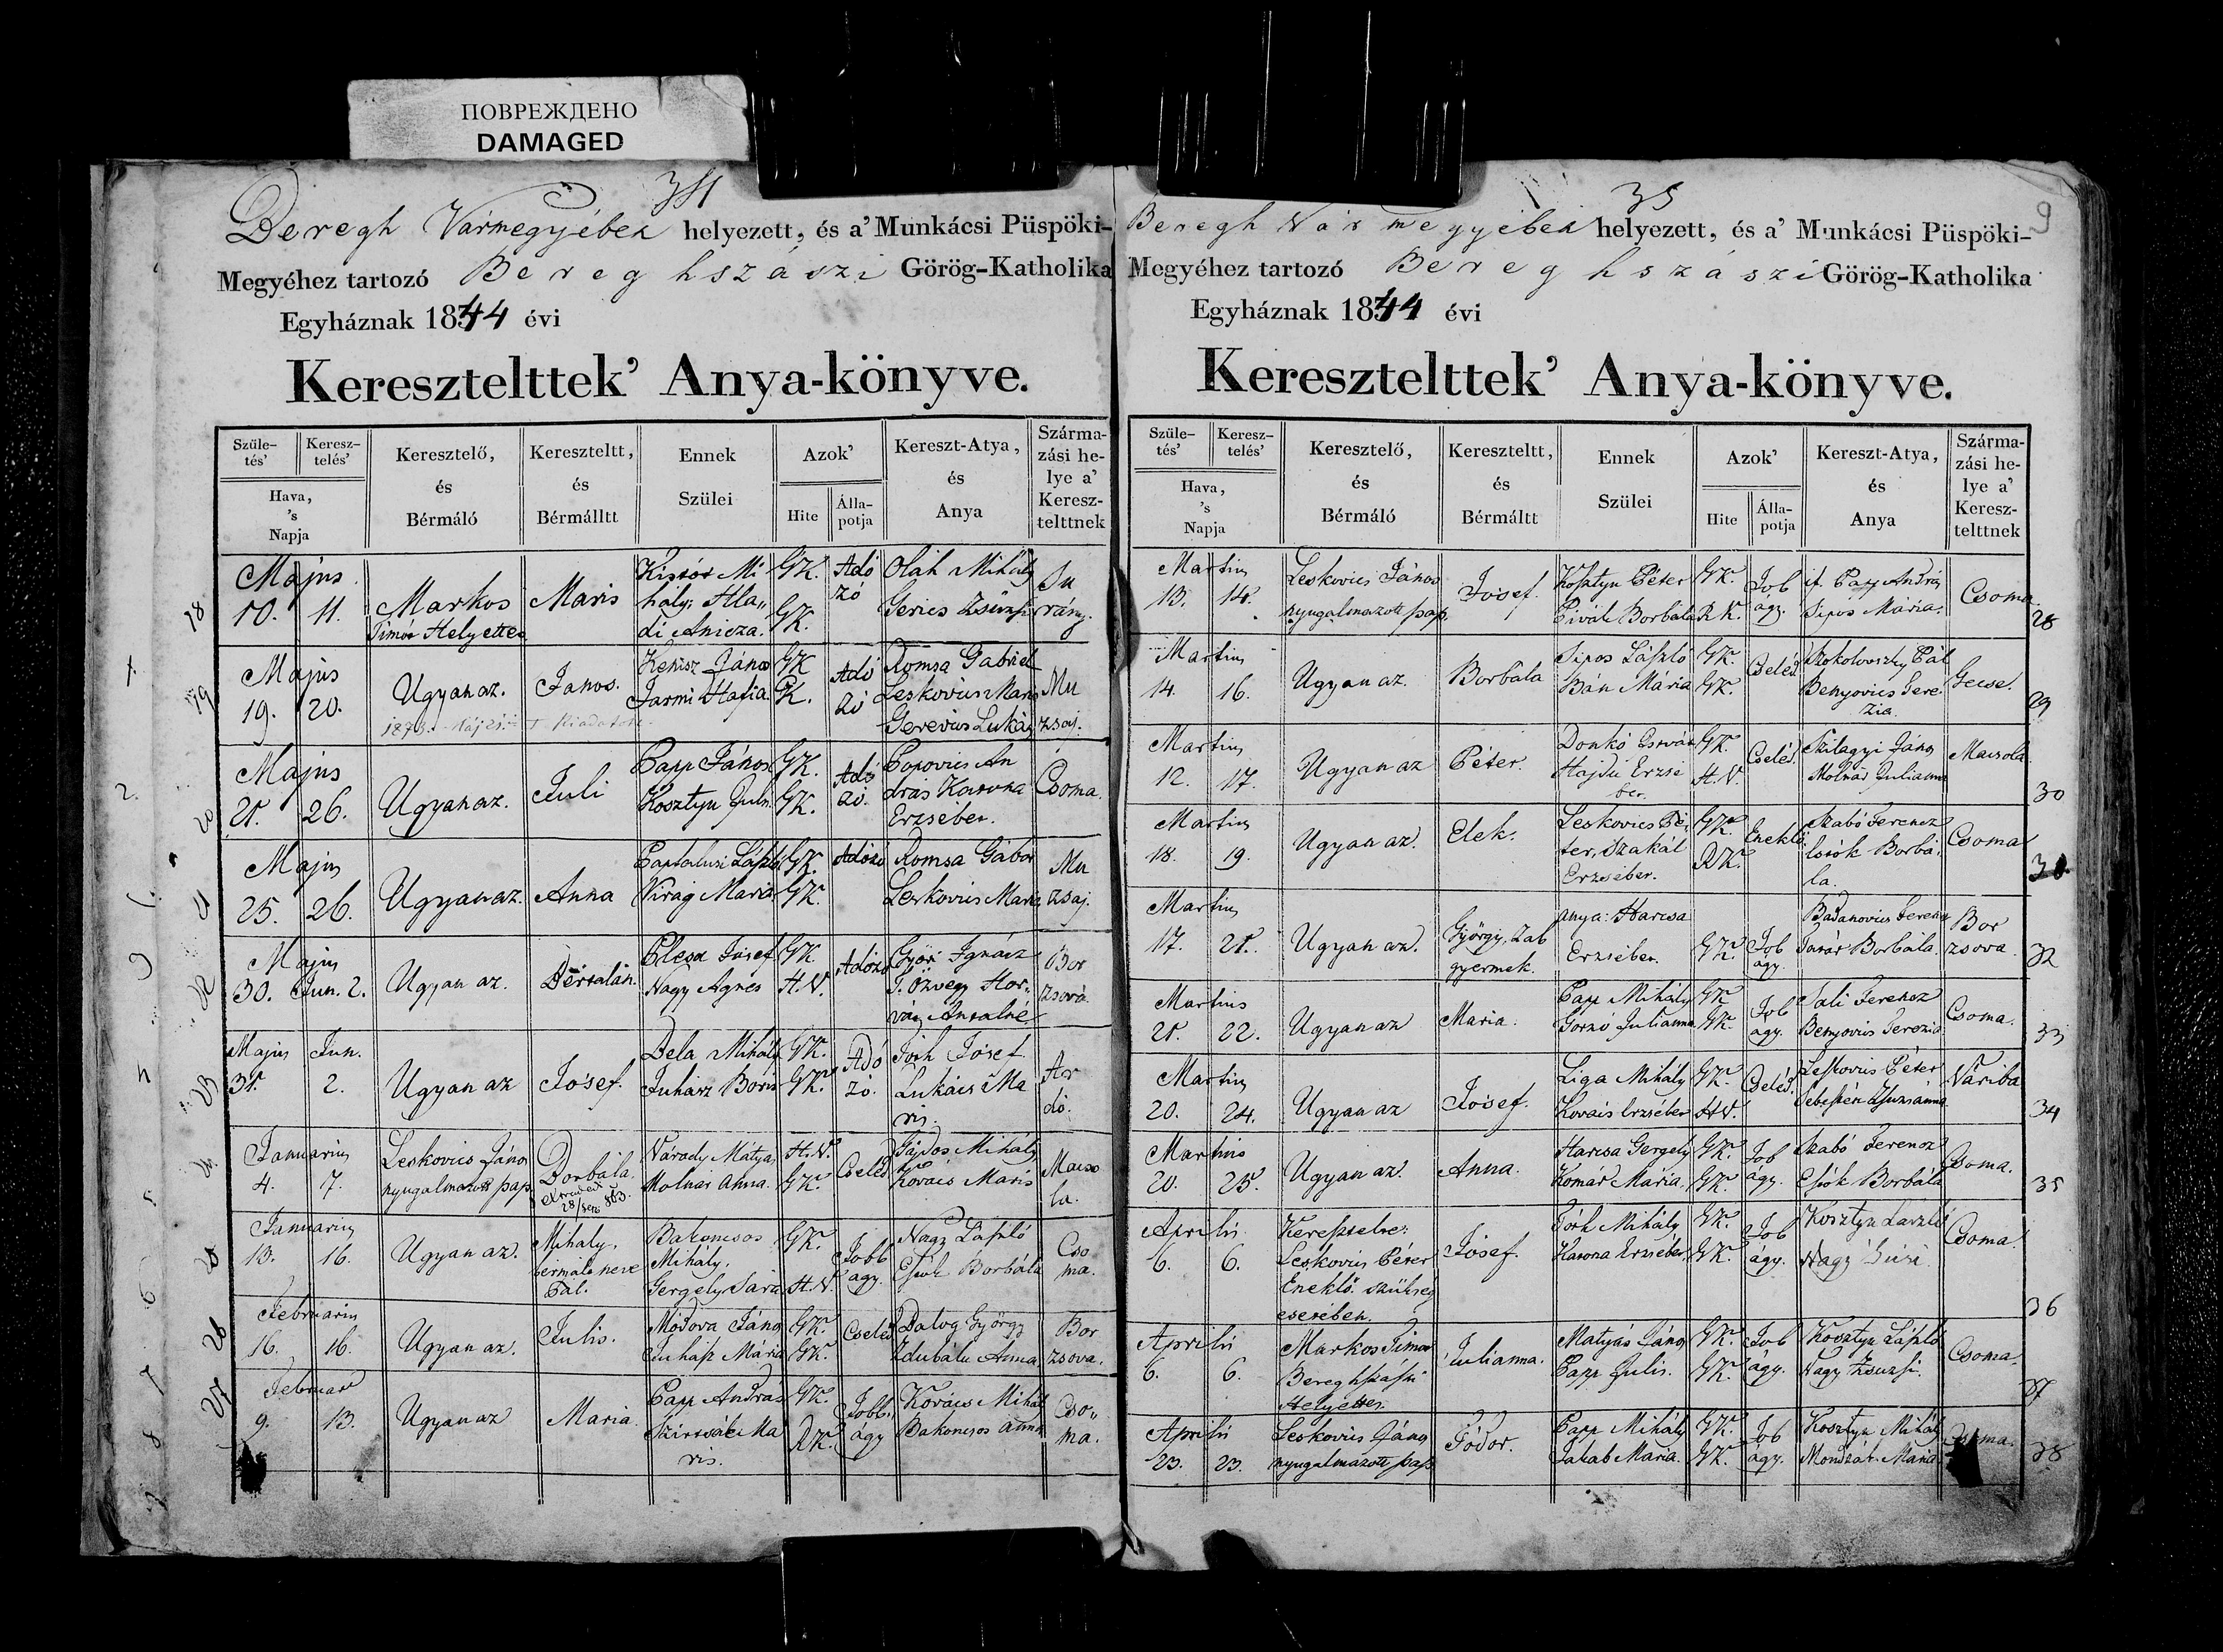 ПОВРЕЖДЕНО
DAMAGED
34
Beregh Vármegyében helyezett, és a' Munkácsi Püspöki-
Megyéhez tartozó Bereghszászi Görög-Katholika
Egyháznak 1844 évi
Keresztelttek' Anya-könyve.
Szüle-tés' Keresz-telés' Hava, 's Napja
Keresztelő, és Bérmáló
Kereszteltt, és Bérmálltt
Ennek Szülei
Azok' Hite Álla-potja
Kereszt-Atya, és Anya
Szárma-zási he-lye a' Keresz-telttnek
18 Majus 10. 11. Markos Timót Helyettes Maris GK. GK. Adó zó Oláh Mihály
19 Majus 19. 20. Ugyan az. Janos. Kenisz János GK GK. Adó zó Romsa Gabriel Leskovics Maris Mu zsaj.
20 Majus 21. 26. Ugyan az. Juli Papp János Kosztyu Juli GK. GK. Adó zó. Popovics An drás Katona Erzsébet. Csoma.
21 Majus 25. 26. Ugyan az. Anna Virág Maria GK. GK. Adózó Romsa Gábor Leskovics Maris Mu zsaj.
22 Majus 30. Jun. 2. Ugyan az. Bertalan. Plesa Josef Nagy Agnes GK H.V. Adózó Győri Ignácz Özvegy Hor, vát Antalné Bor zsova.
23 Majus 31. Jun. 2. Ugyan az Josef. Bela Mihály Juhász Boris GK. GK. Adó zó. Tóth Josef Lukács Ma ris. Ar dó.
24 Januarius 4. 7. Leskovics János nyugalmazott pap Borbála. Várady Mátyás Molnár Anna. H.V. GK. Cseléd Gajdos Mihály Kovács Maris Macso la.
25 Januarius 13. 16. Ugyan az. Mihaly. bérmálo neve Pál. Bakoncsos Mihály. Gergely Sára GK. H.V. Jobb ágy. Nagy László Csiók Borbála Cso ma.
26 Februarius 16. 16. Ugyan az. Julis. Modova János Juhász Mária GK. GK. Cseléd Balog György Zdubálu Anna Bor zsova.
27 Februar 9. 13. Ugyan az Maria. Papp András GK. RK. Jobb. ágy Kovács Mihál Bakoncsos anna Cso, ma.
35
9
Beregh Vármegyében helyezett, és a' Munkácsi Püspöki-
Megyéhez tartozó Bereghszászi Görög-Katholika
Egyháznak 1844 évi
Keresztelttek' Anya-könyve.
Szüle-tés' Keresz-telés' Hava, 's Napja
Keresztelő, és Bérmáló
Kereszteltt, és Bérmáltt
Ennek Szülei
Azok' Hite Álla-potja
Kereszt-Atya, és Anya
Szárma-zási he-lye a' Keresz-telttnek
Martius 13. 14. Leskovics János nyugalmazott pap. Josef. Kosztyu Péter Pivál Borbála GK. R.K. Job ágy. if. Papp András Sipos Mária. Csoma 28
Martius 14. 16. Ugyan az. Borbála Sipos László Bán Mária GK. GK. Cseléd Szokolovszky Pál Benyovics Tere zia. Gecse. 29
Martius 12. 17. Ugyan az Péter. Donkó István Hajdu Erzsé bet. GK. H.V. Cseléd. Szilagyi János Molnár Julianna Macsola 30
Martius 18. 19. Ugyan az. Elek. Leskovics Pé, ter, Szakál Erzsébet. GK. RK. Éneklő Szabó Ferencz Csiók Borbá, la. Csoma
Martius 17. 21. Ugyan az. György, Zab gyermek. anya: Harcsa Erzsébet. GK. Job ágy. Badanovics Ferencz Borbála. Bor zsova. 32
Martius 21. 22. Ugyan az Maria. Papp Mihály Gorzó Julianna GK GK. Job ágy. Pali Ferencz Benyovics Terezia Csoma. 33
Martius 20. 24. Ugyan az Josef. Liga Mihály Kovács Erzsébet GK. H.V. Cseléd. Leskovics Péter Sebestyén Zsuzsánna Váriba 34
Martius 20. 25. Ugyan az. Anna. Harcsa Gergely Komár Mária. GK. GK. Job ágy. Szabó Ferencz Csiók Borbála Csoma. 35
Aprilis 6. 6. Keresztelte: Leskovics Péter Éneklő. szükség esetében. Josef. Tóth Mihály Katona Erzsébet. GK. GK. Job ágy. Kosztyu László Nagy Susi Csoma. 36
Aprilis 6. 6. Markos Timot Bereghszászi Helyettes. Julianna. Matyás János Papp Julis. GK. GK. Job ágy. Kosztyu László Nagy Zsuzsi. Csoma. 37
Aprilis 23. 23. Leskovics János nyugalmazott pap Fódor. Papp Mihály Jakab Maria. GK. GK. Job ágy. Kosztyu Mihály 38